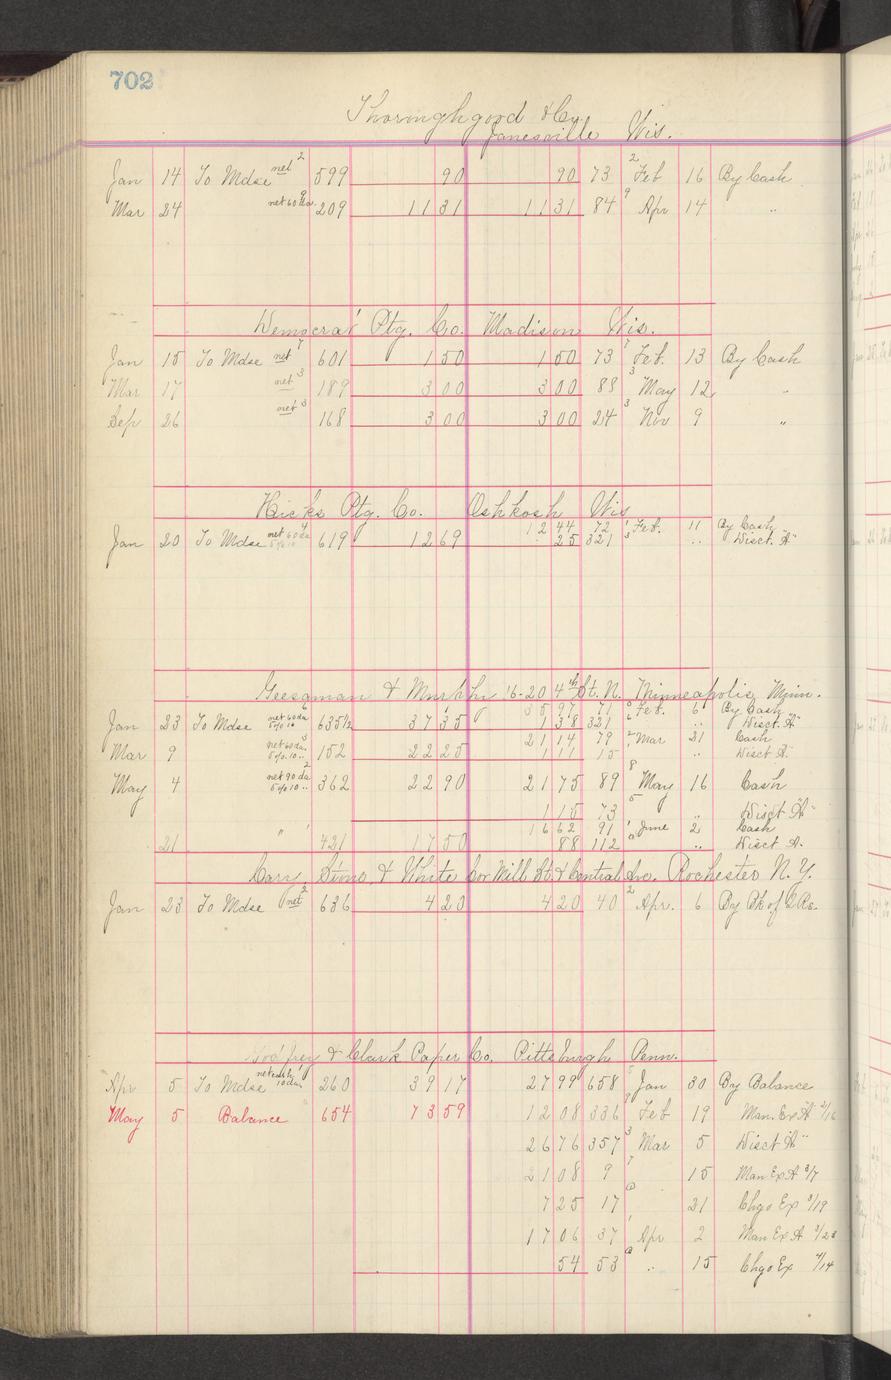 702
Thoroughgood & Co.
Janesville Wis.
Jan 14 To Mdse net 2 599 90 90 73 2 Feb 16 By Cash
Mar 24 net 60 da. 9 209 11 31 11 31 84 9 Apr 14 "
Democrat Ptg. Co. Madison Wis.
Jan 15 To Mdse net 7 601 1 50 1 50 73 7 Feb. 13 By Cash
Mar 17 net 3 189 3 00 3 00 88 3 May 12 "
Sep 26 net 3 168 3 00 3 00 24 3 Nov 9 "
Hicks Ptg. Co. Oshkosh Wis
12 44 72 1 Feb. 11 By Cash
Jan 20 To Mdse net 60 da 4 5% 10 619 12 69 25 321 3 " Disct. "A"
Geesaman & Murphy 16-20 4th St. N. Minneapolis Minn.
35 97 71 Feb. 6 By Cash
Jan 23 To Mdse net 60 da 6 5% 10 " 635½ 37 35 1 38 321 6 " Disct. "A"
21 14 79 2 Mar 21 Cash
Mar 9 net 60 da. 3 5% 10 " 152 22 25 1 11 15 1 " Disct A.
May 4 net 90 da 2 5% 10 " 362 22 90 21 75 89 8 May 16 Cash
1 15 73 5 " Disct "A"
16 62 91 1 June 2 Cash
21 " 1 421 17 50 88 112 0 " Disct A.
& White Cor Mill St. & Central Ave. Rochester N. Y.
Jan 23 To Mdse net 2 636 4 20 4 20 40 2 Apr. 6 By Bk of
Godfrey & Clark Paper Co. Pittsburgh Penn.
Apr 5 To Mdse net cash 1 10 da. 260 39 17 27 99 658 5 Jan 30 By Balance
May 5 Balance 654 73 59 12 08 336 Feb 19 Man. Ex "A" 2/16
26 76 357 3 Mar 5 Disct "A"
21 08 9 7 15 Man Ex A 3/7
7 25 17 21 Chgo Ex 3/19
17 06 37 1 Apr 2 Man Ex A 3/28
54 53 " 15 Chgo Ex 4/14